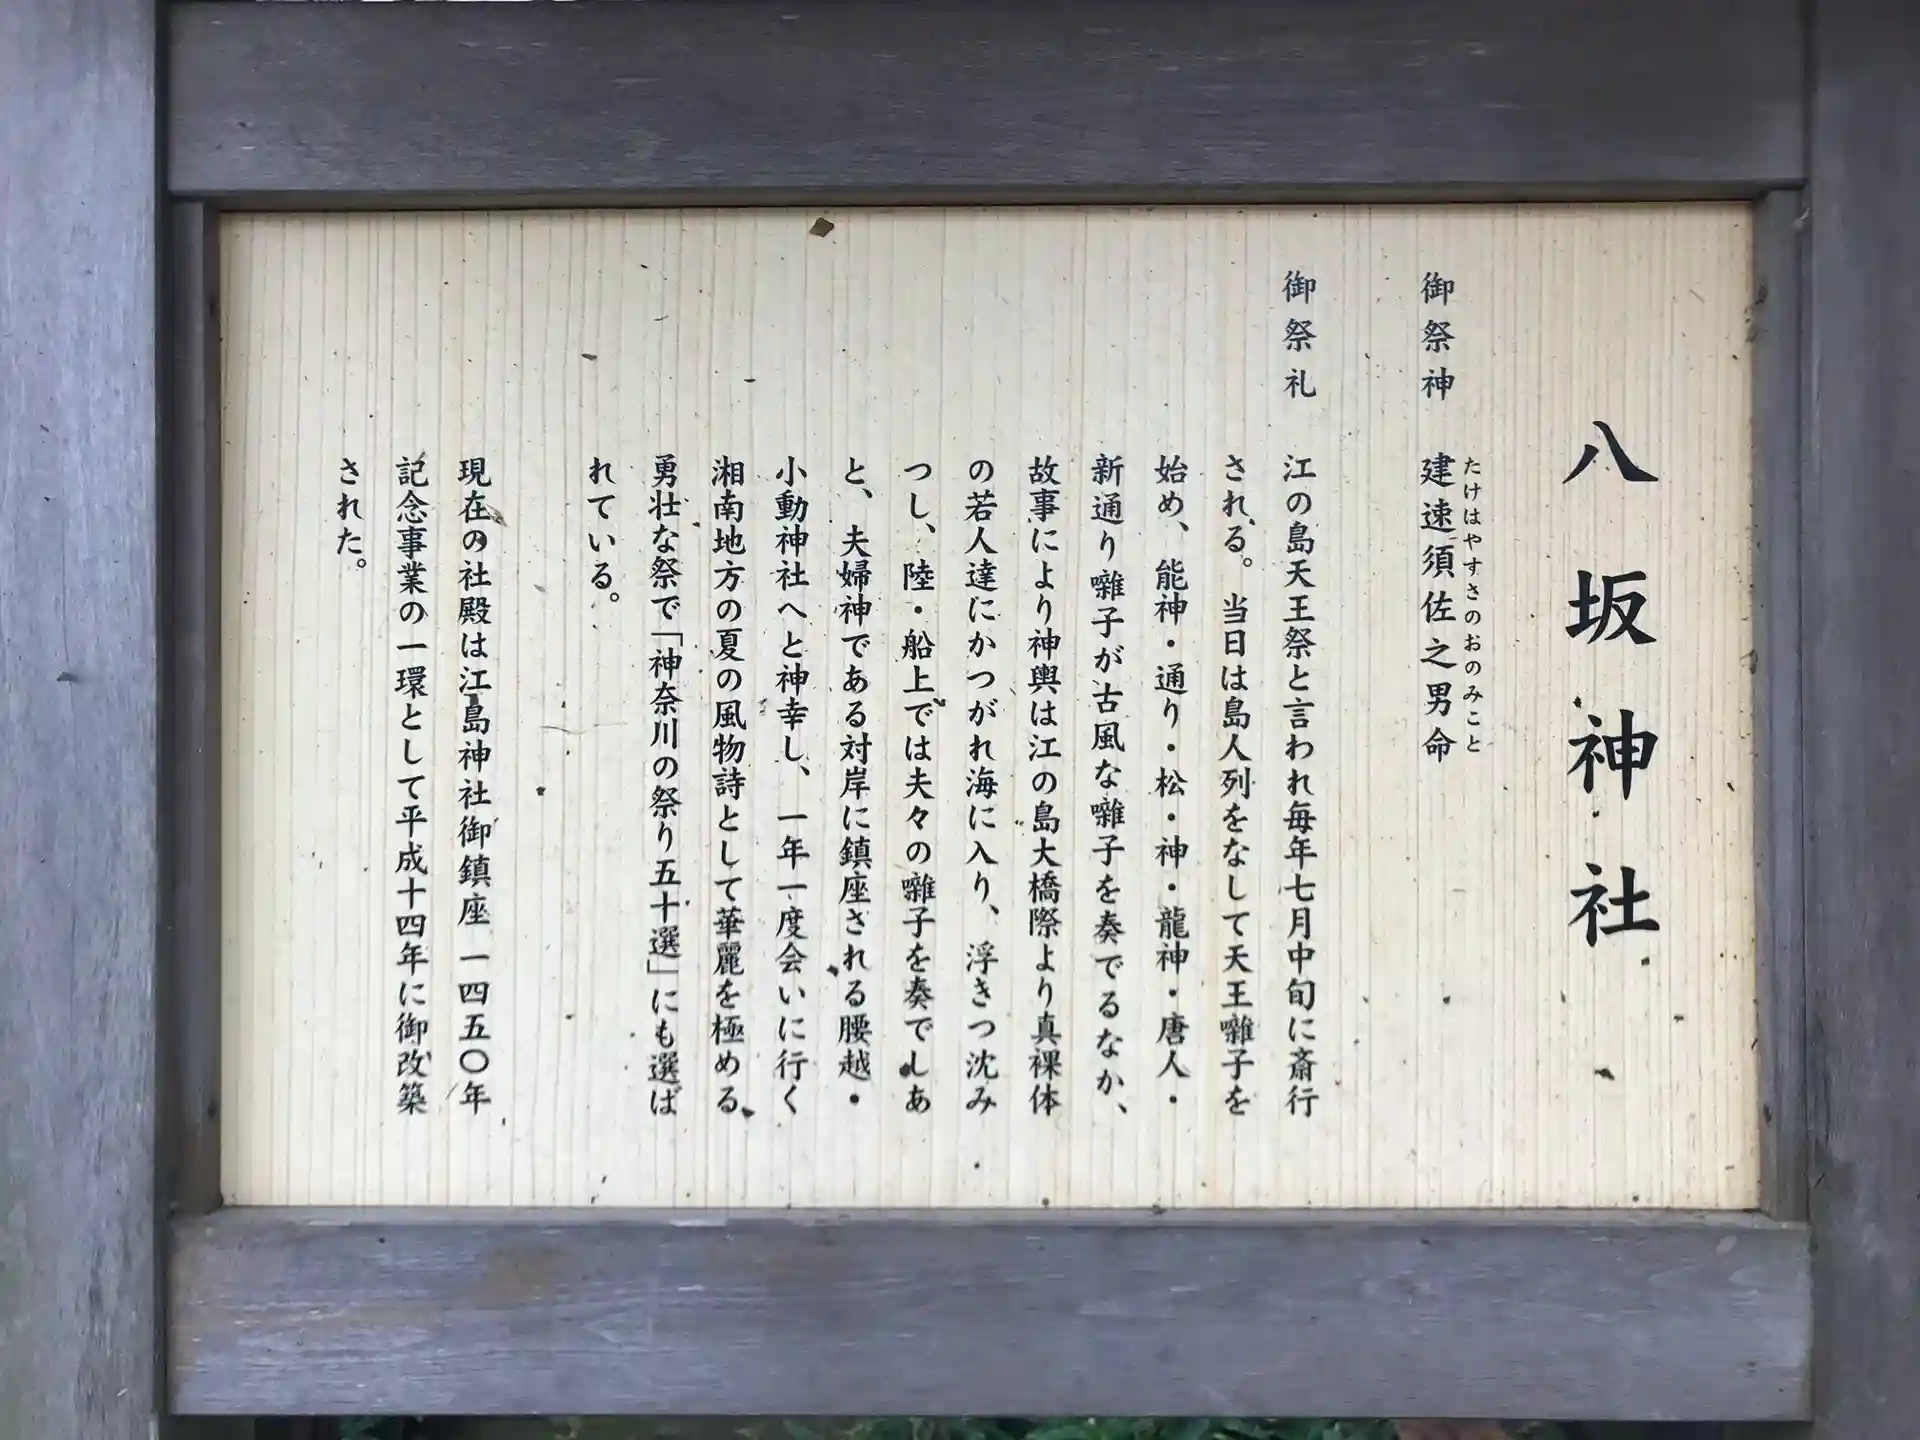 八坂神社
たけはやすさのおのみこと
御祭神 建速須佐之男命
御祭礼 江の島天王祭と言われ毎年七月中旬に斎行
される。当日は島人列をなして天王囃子を
始め、能神・通り・松・神・龍神・唐人・
新通り囃子が古風な囃子を奏でるなか、
故事により神輿は江の島大橋際より真裸体
の若人達にかつがれ海に入り、浮きつ沈み
つし、陸・船上では夫々の囃子を奏でしあ
と、夫婦神である対岸に鎮座される腰越・
小動神社へと神幸し、一年一度会いに行く
湘南地方の夏の風物詩として華麗を極める
勇壮な祭で「神奈川の祭り五十選」にも選ば
れている。
現在の社殿は江島神社御鎮座一四五〇年
記念事業の一環として平成十四年に御改築
された。